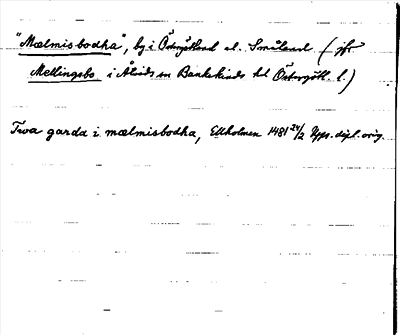 "Mælmisbodha", by i Östergötland el. Småland (jfr
Mellingsbo i Åtvids sn Bankekinds hd Östergötl. l.)
Twa garda i mælmisbodha, Ekholmen 1481 24/2 Upps. dipl. orig.